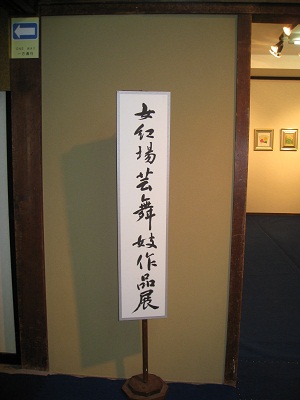 女紅場芸舞妓作品展